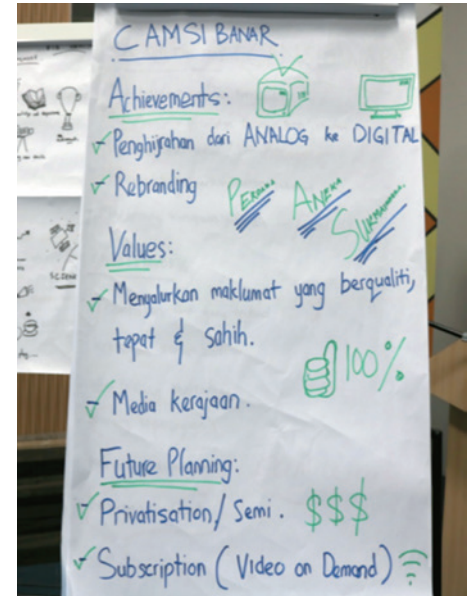 CAMSI BANAR
Achievements:
- Penghijrahan dari ANALOG ke DIGITAL
- Rebranding
PERDANA ANEKA SUKMAINDERA
Values:
- Mengalurkan maklumat yang berqualiti,
tepat & sahih.
100%
- Media Kerajaan.
Future Planning:
- Privatisation / Semi. $$$
- Subscription (Video on Demand)